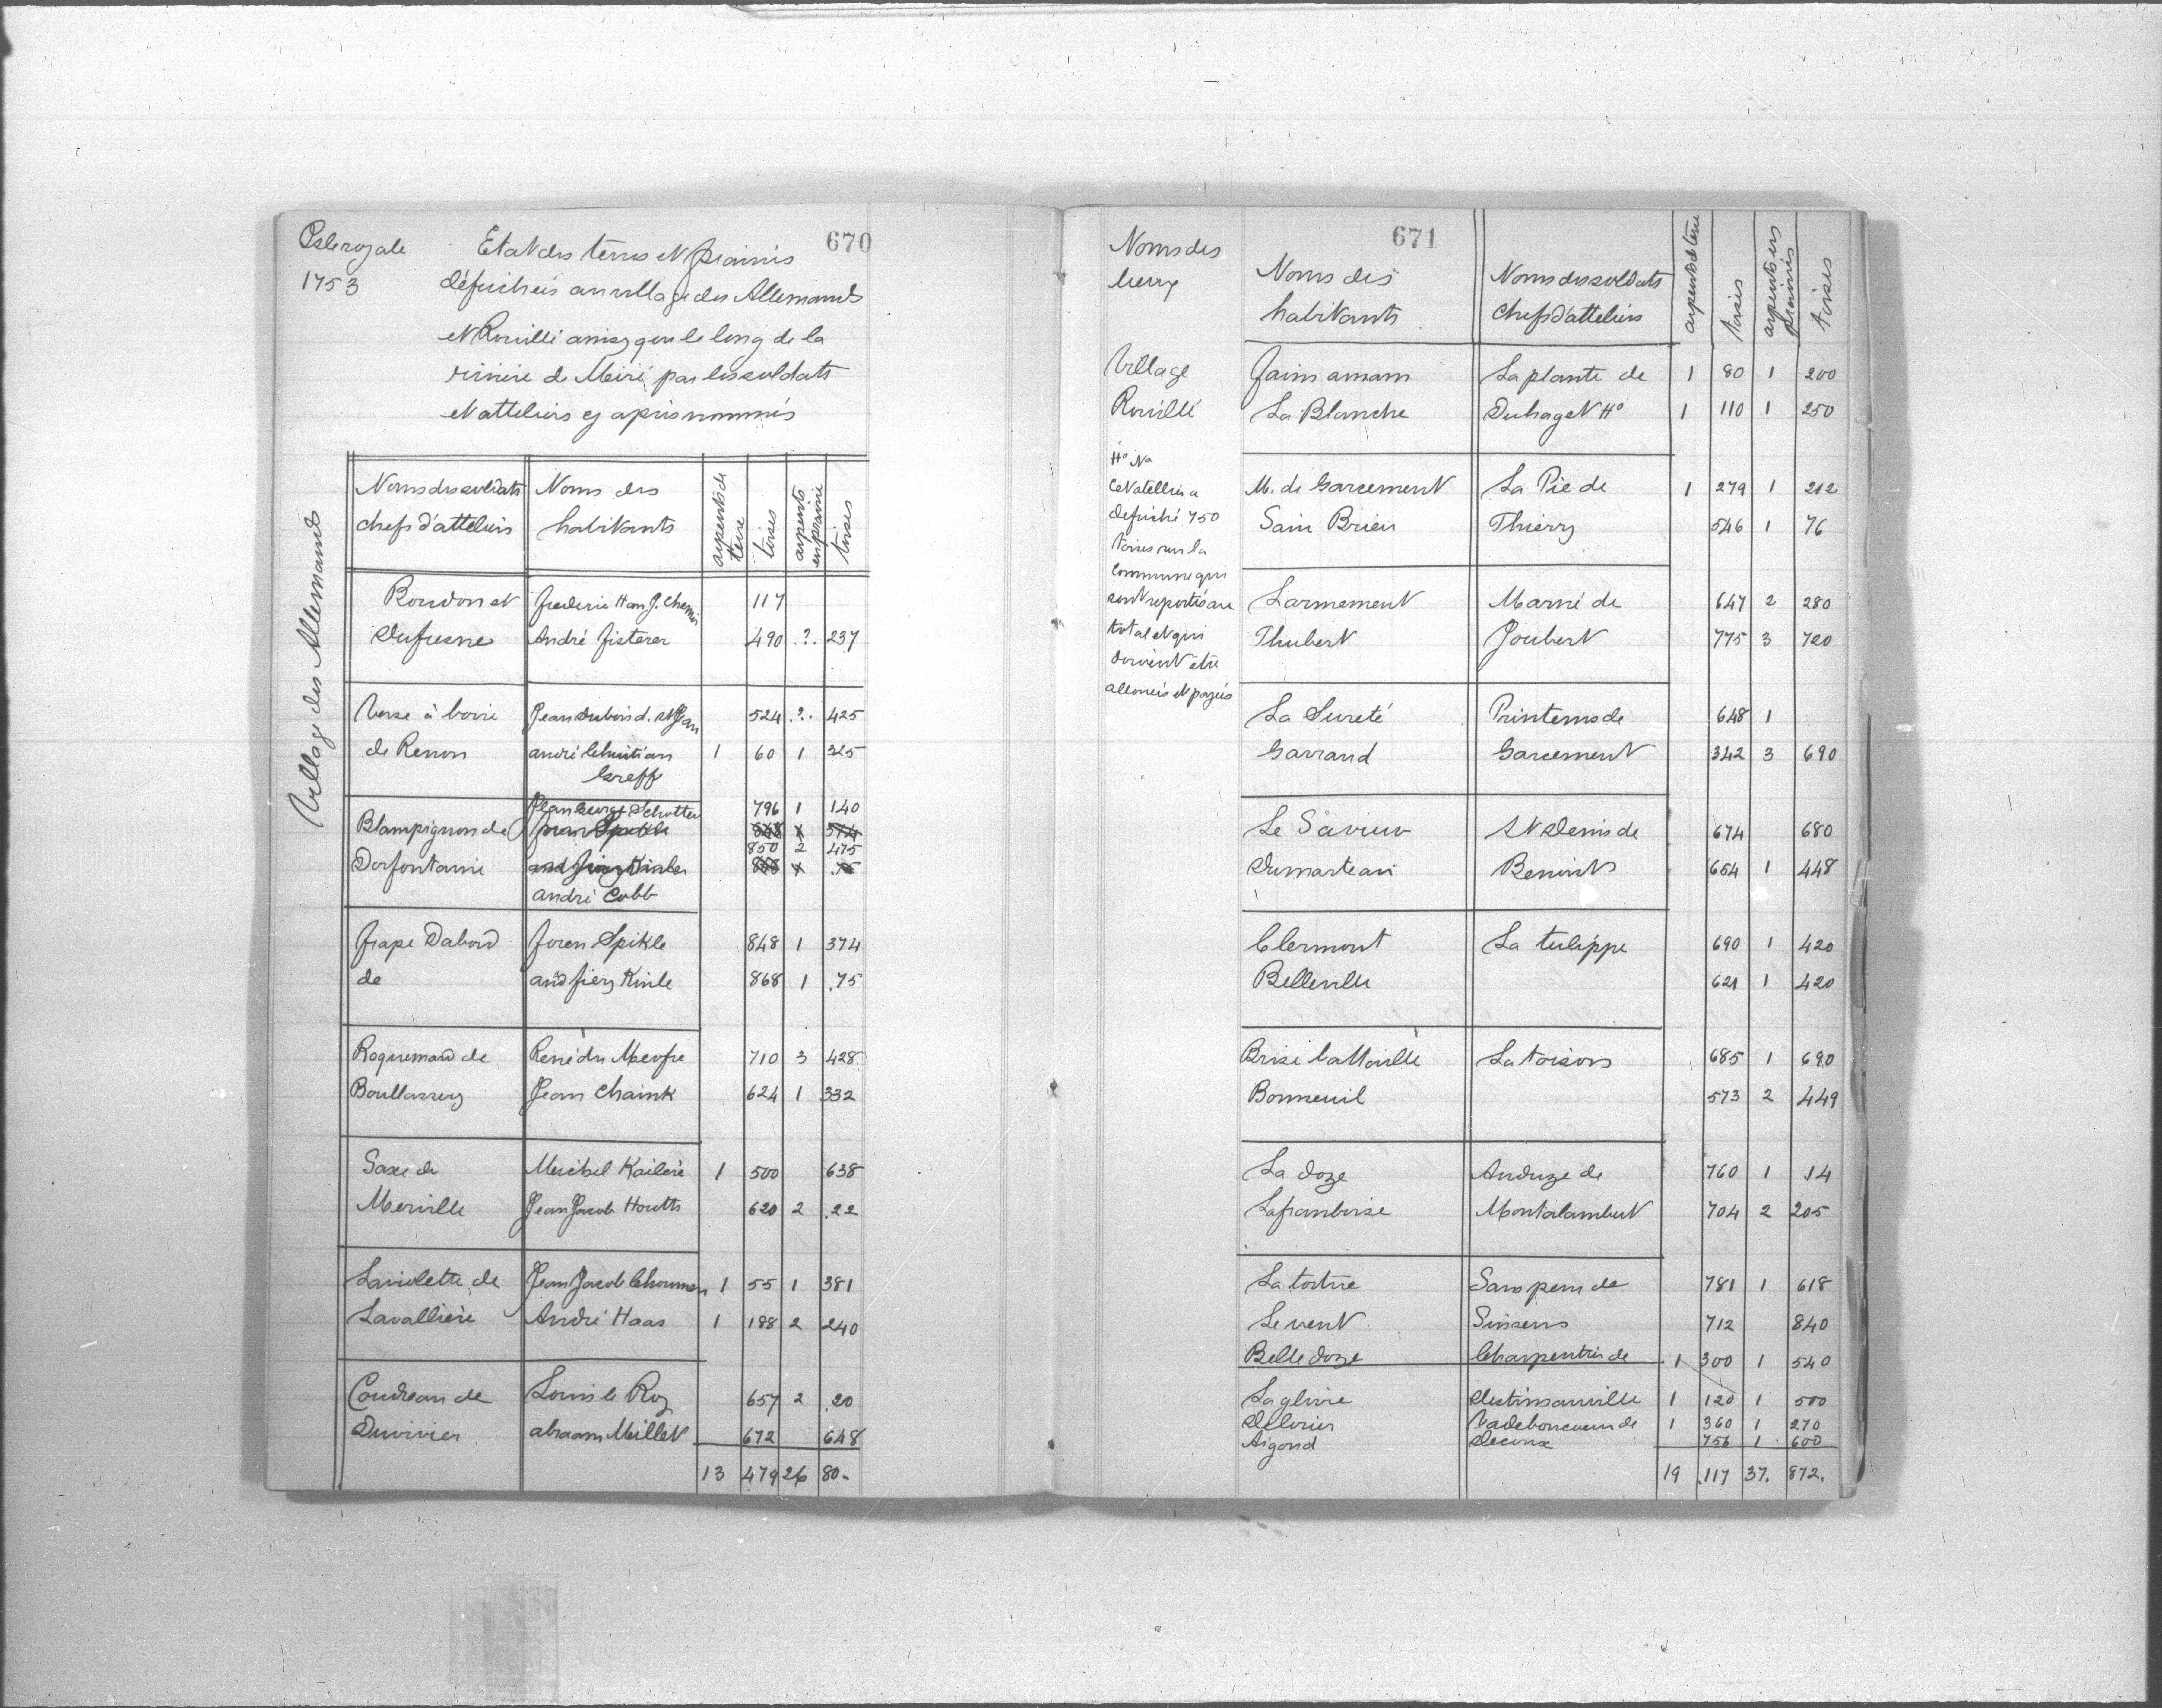 670
Isle royale
1753
Etat des terres et prairies
défrichées au village des Allemands
et Rouillé ainsy que le long de la
rivière de Miré par les soldats
et atteliers cy après nommés
Village des Allemands
Noms des soldats chefs d'atteliers | Noms des habitants | arpents de terre | toises | arpents en prairie | toises
Bourdon et | frederic Han J. Chemin | 117
Dufresne | André fisterer | 490 .?. 237
Verse à boire | Jean Dubois d. St Jean | 524 .?. 425
de Renon | andré Christian | 1 60 1 325
Greff
Jean George Schotter | 796 1 140
Blampignon de | Joren Spikle | 848 1 374
850 2 475
Dorfontaine | and fiery Kinle | 868 1 .75
andré Cobb
frape Dabord | Joren Spikle | 848 1 374
de | and fiery Kinle | 868 1 .75
Roquemard de | René du Meofre | 710 3 428
Boullarsery | Jean Chaink | 624 1 332
Saxe de | Meichel Kaileré | 1 500 638
Merville | Jean Jacob Houtts | 620 2 .22
Laviolette de | Jean Jacob Choumen | 1 55 1 381
Lavallière | André Haas | 1 188 2 240
Coudreau de | Louis le Roy | 657 2 .20
Duvivier | abraam Millet | 672 648
13 479 26 80.
671
Noms des lieux | Noms des habitants | Noms des soldats chefs d'atteliers | arpents de terre | toises | arpents en prairies | toises
Village | Jains amam | La plante de | 1 80 1 200
Rouillé | La Blanche | Duhaget Hº | 1 110 1 250
Hº Nª
Cet atellier a
défriché 750
toises sur la
commune qui
sont reportés au
total et qui
doivent être
alloueés et payeés
M. de Garcement | La Pie de | 1 279 1 212
Sain Brieu | Thierry | 546 1 76
Larmement | Marné de | 647 2 280
Thubert | Joubert | 775 3 720
La Sureté | Printems de | 648 1
Garrand | Garcement | 342 3 690
Le Savieur | St Denis de | 674 680
Dumarteau | Benoints | 654 1 448
Clermont | La tulippe | 690 1 420
Belleville | 621 1 420
Brise battaille | La toison | 685 1 690
Bonneuil | 573 2 449
La doze | Anduze de | 760 1 .14
Laframboise | Montalambert | 704 2 205
La tortue | Sans peur de | 781 1 618
Le vent | Sinsens | 712 840
Belle doze | Charpentier de | 1 300 1 540
La glivie | Destinsanville | 1 120 1 500
Delorier | Vadeboncoeur de | 1 360 1 270
Aigond | Decoux | 756 1 600
19 .117 37. 872.